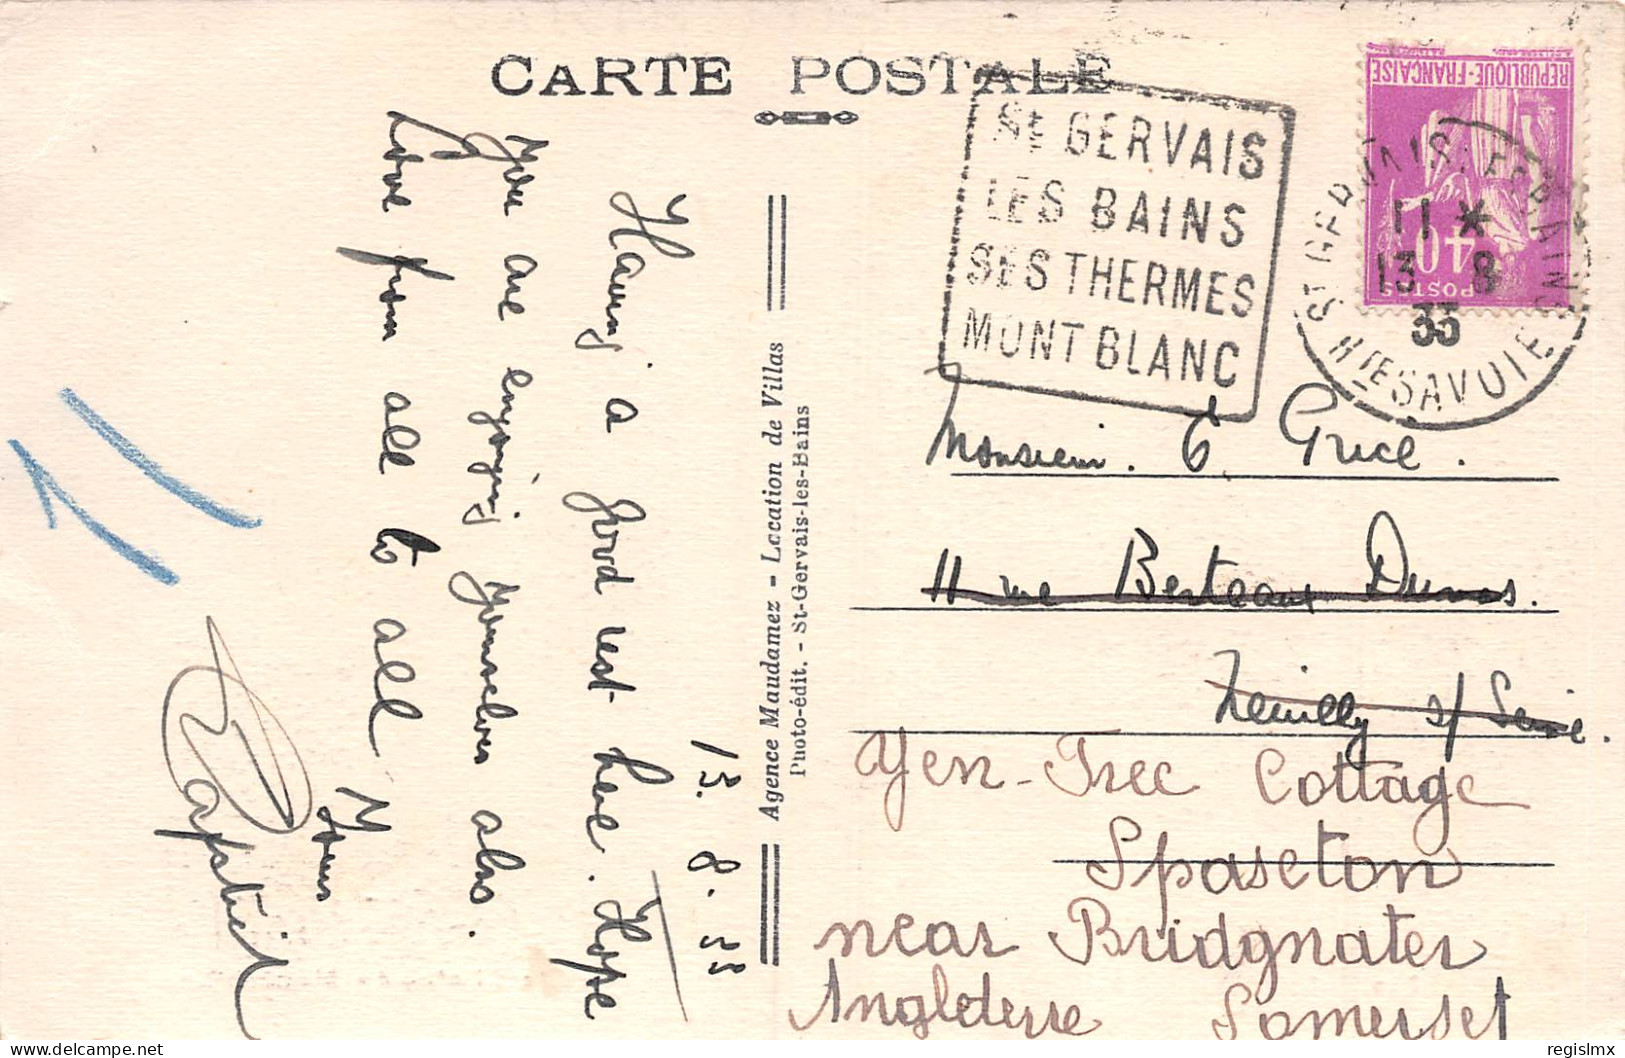 CARTE POSTALE
St GERVAIS
LES BAINS
SES THERMES
MONT BLANC
REPUBLIQUE-FRANÇAISE
40
POSTES
ST GERVAIS
11 *
13 8
33
HTE SAVOIE
13.8.33
Having a good rest here. Hope
you are enjoying yourselves also.
Love from all to all
Yours
Agence Maudamez - Location de Villas
Photo-édit. - St-Gervais-les-Bains
Monsieur. G Grice.
11 rue Berteaux Dumas.
Neuilly s/ Seine.
Yen-Trec Cottage
Spaseton
near Bridgnater
Angleterre Somerset
regislmx